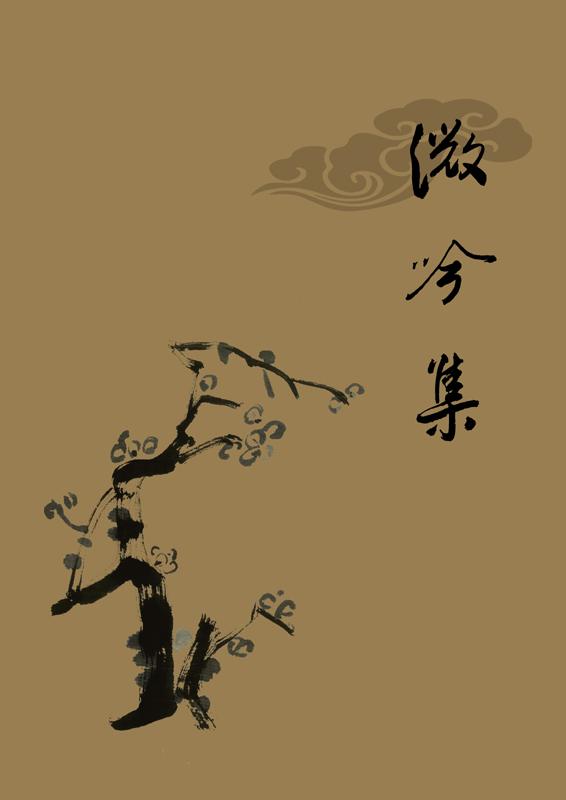 微吟集